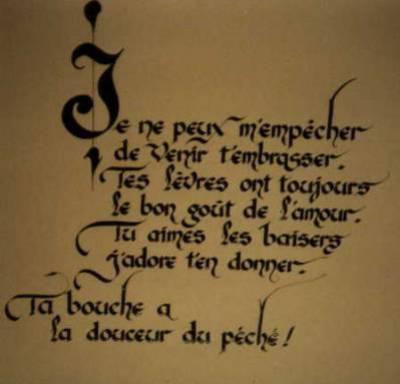 Je ne peux m'empêcher
de venir t'embrasser.
Tes lèvres ont toujours
le bon goût de l'amour.
Tu aimes les baisers
j'adore t'en donner.
Ta bouche a
la douceur du péché !